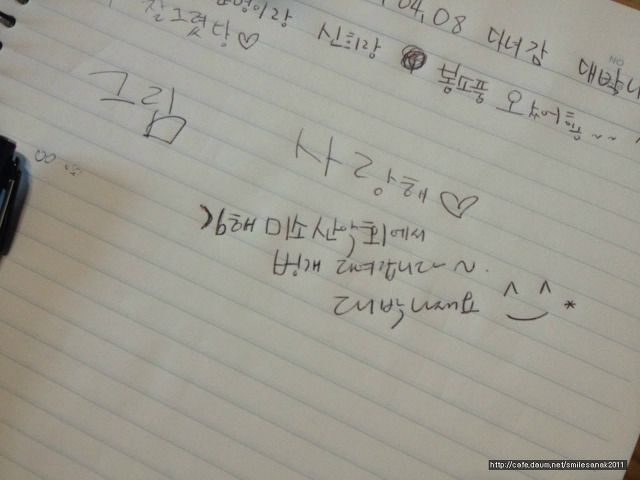 04.08 다녀감
신희랑 봄소풍
잘그렸당♡
그림
사랑해♡
김해 미소산악회에서
벙개 다녀갑니다~~.
대박나세요 ^^*
http://cafe.daum.net/smilesanak2011